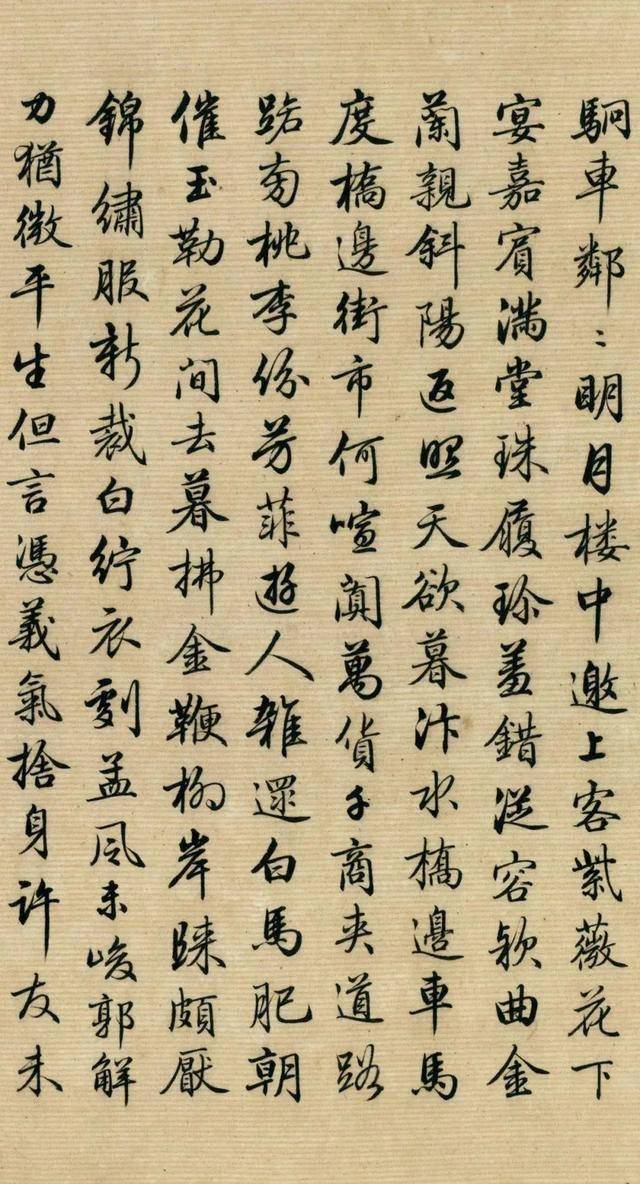 駉車鄰〻明月楼中邀上客紫薇花下
宴嘉賓满堂珠履珍羞錯從容欵曲金
蘭親斜陽返照天欲暮汴水橋邊車馬
度橋邊街市何喧闐萬貨千商夾道路
路旁桃李份芳菲遊人雜還白馬肥朝
催玉勒花间去暮拂金鞭柳岸歸頗厭
錦繡服新裁白紵衣劇孟风未峻郭解
力猶微平生但言憑義氣捨身許友未